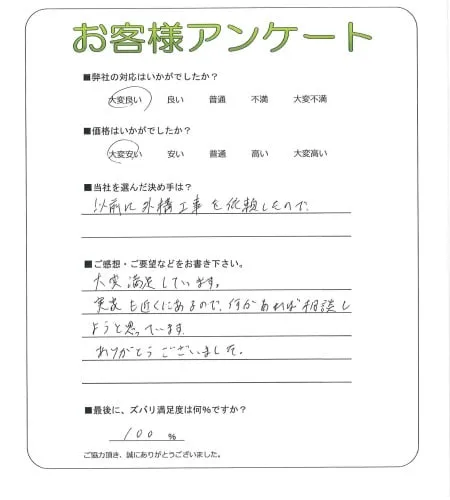 お客様アンケート
■弊社の対応はいかがでしたか？
大変良い 良い 普通 不満 大変不満
■価格はいかがでしたか？
大変安い 安い 普通 高い 大変高い
■当社を選んだ決め手は？
以前に外構工事を依頼したので、
■ご感想・ご要望などをお書き下さい。
大変満足しています。
実家も近くにあるので、何かあれば相談し
ようと思っています。
ありがとうございました。
■最後に、ズバリ満足度は何％ですか？
100 ％
ご協力頂き、誠にありがとうございました。